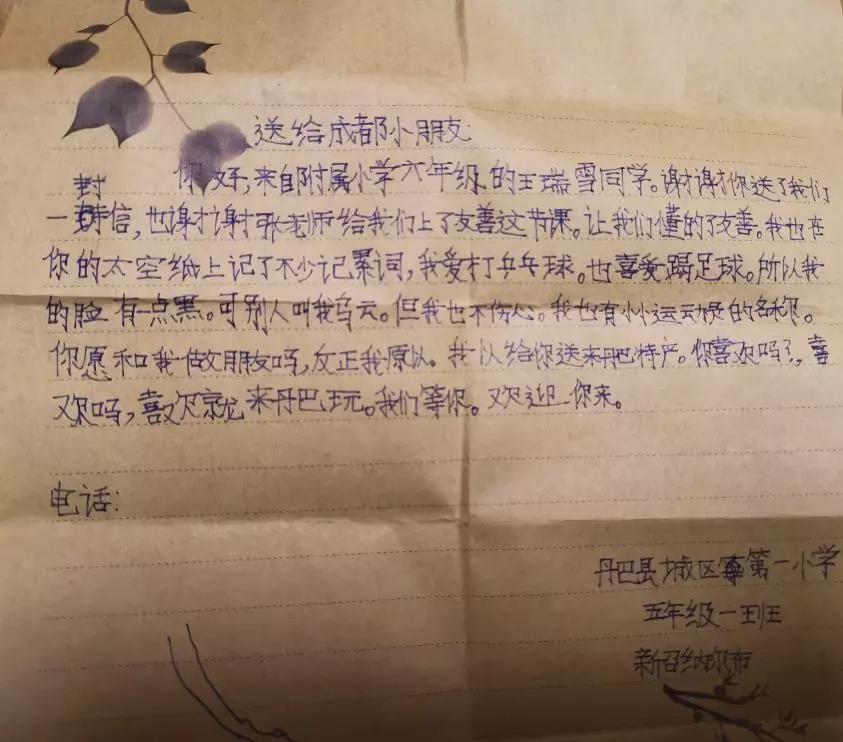 送给成都小朋友
你好,来自附属小学六年级的王瑞雪同学。谢谢你送了我们
一封信,也谢谢张老师给我们上了友善这节课。让我们懂的了友善。我也在
你的太空纸上记了不少记累词,我爱打乒乓球。也喜爱踢足球。所以我
的脸有一点黑。可别人叫我乌云。但我也不伤心。我也有小小运动员的名称。
你愿和我做朋友吗,反正我原以。我以给你送来丹巴特产。你喜欢吗?,喜
欢吗,喜欢就来丹巴玩。我们等你。欢迎你来。
电话:
丹巴县城区第一小学
五年级一班